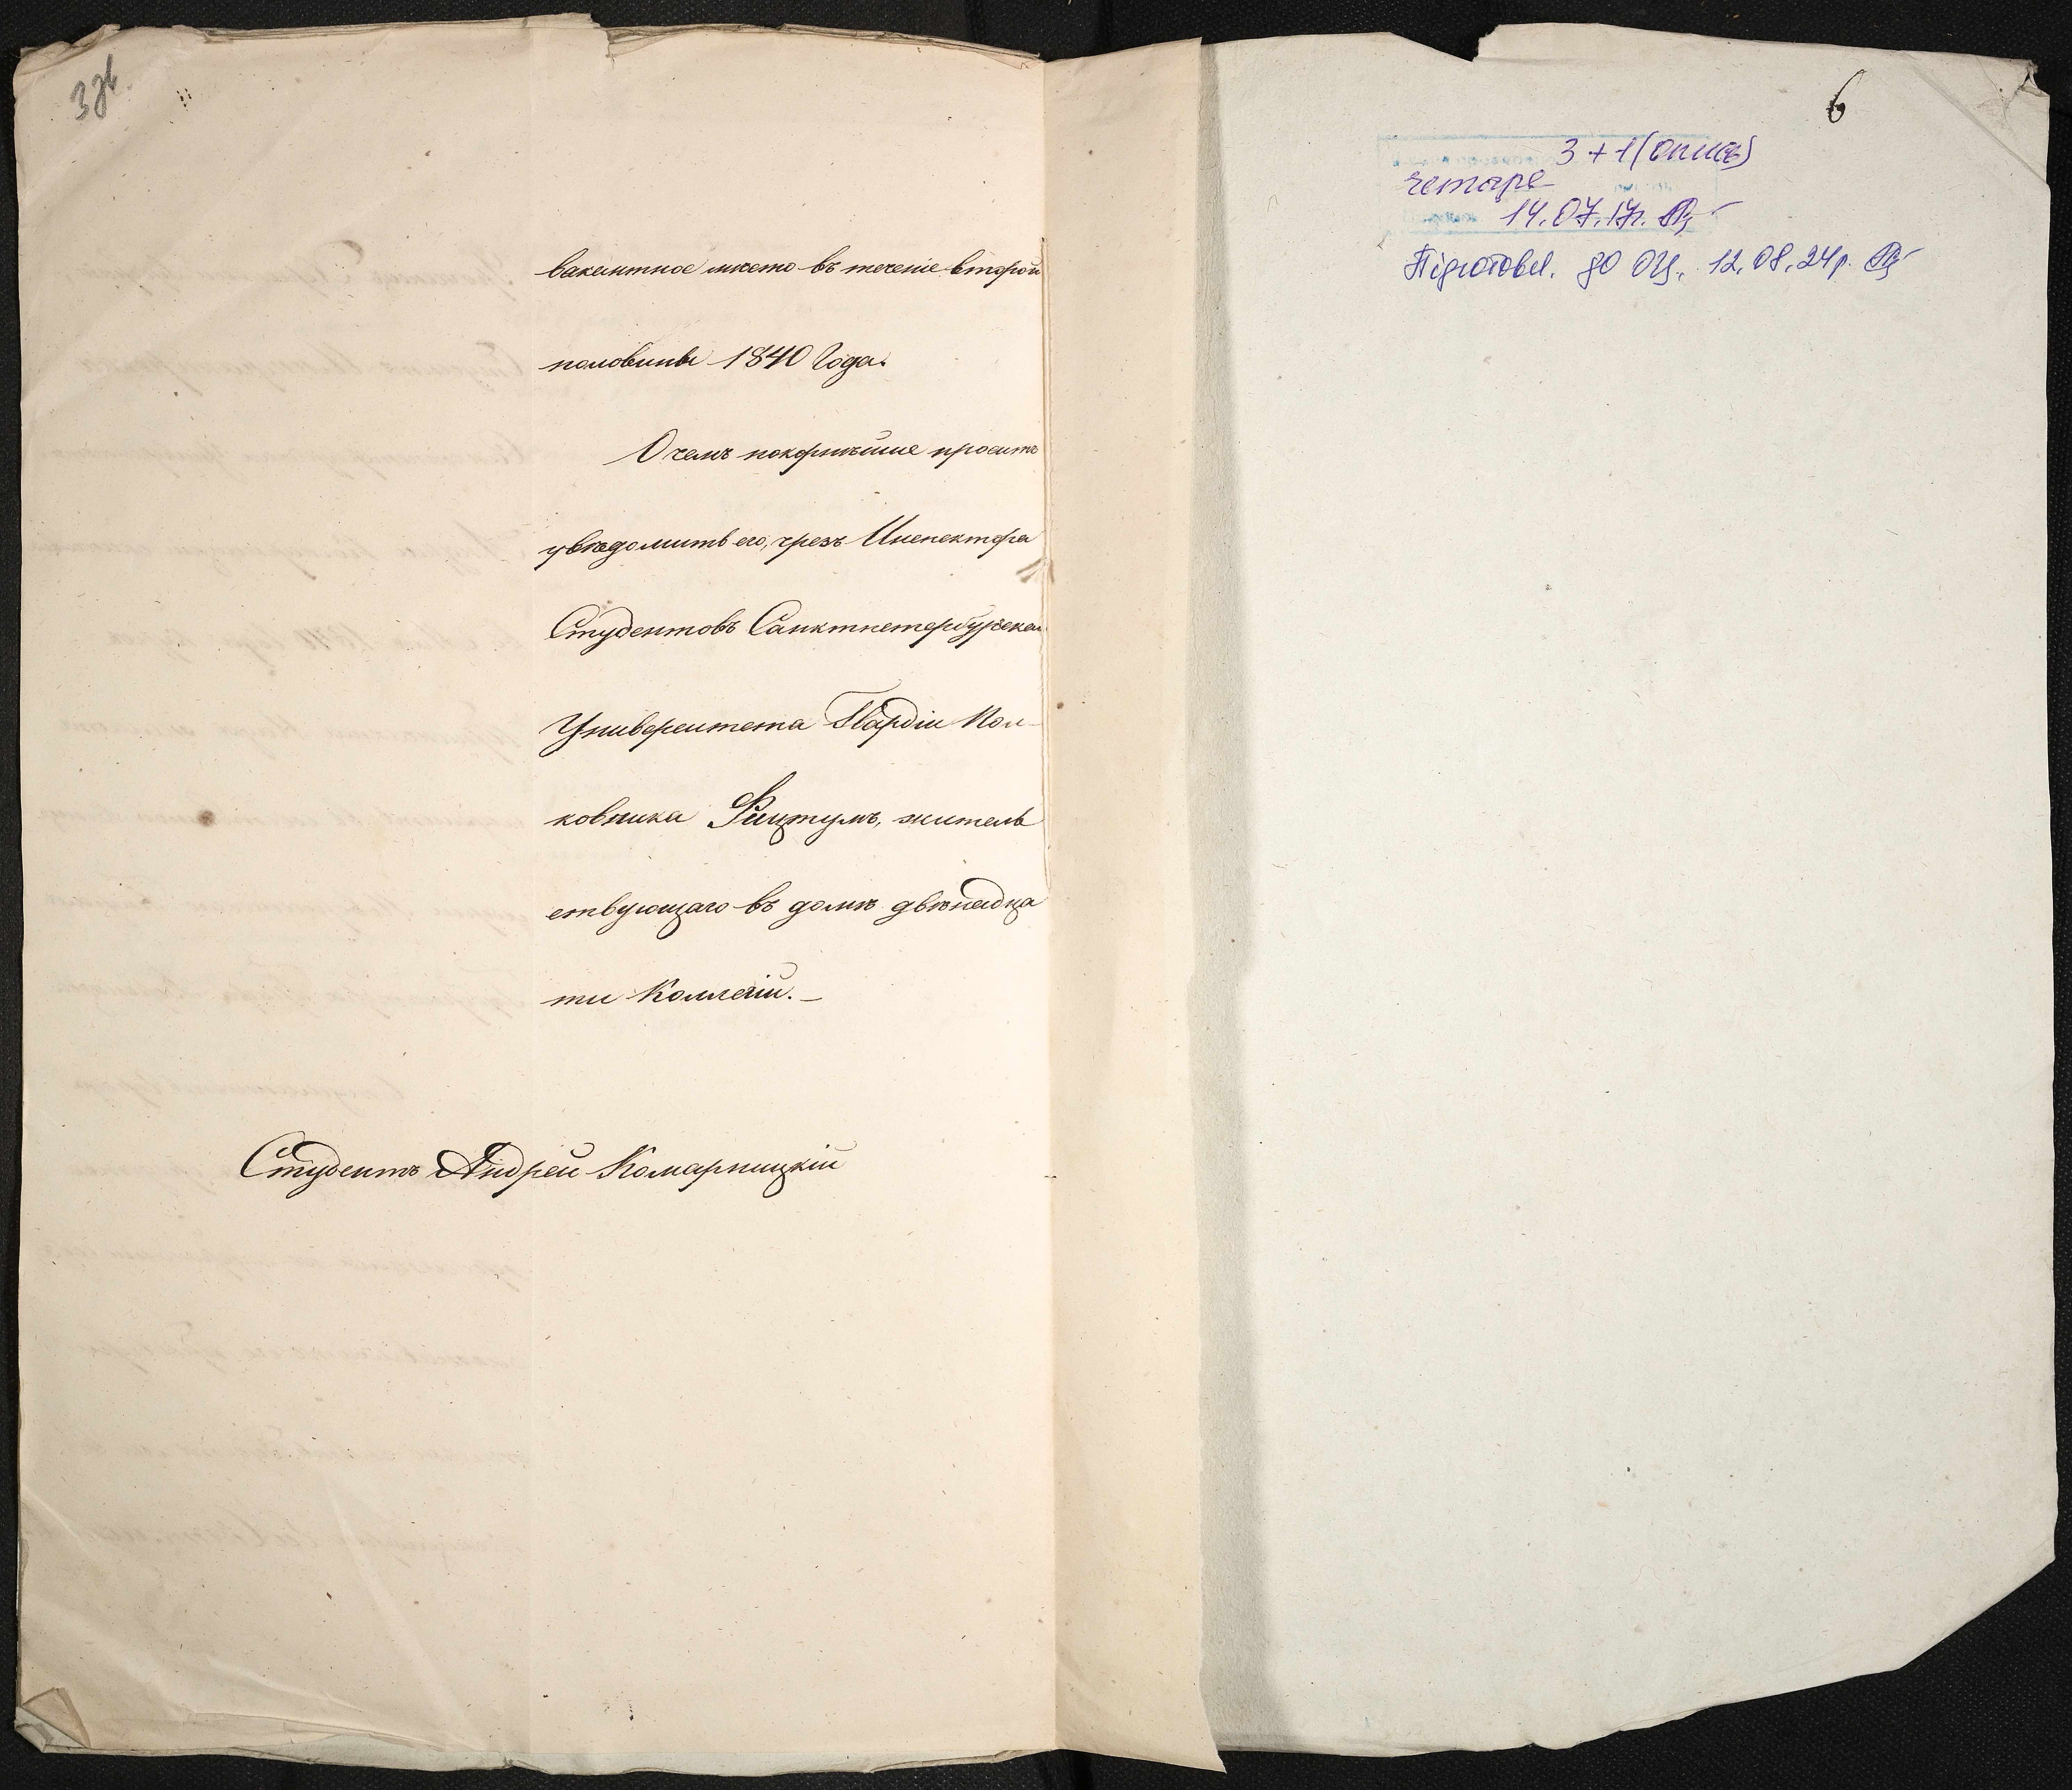 3 зв.
вакантное мѣсто въ теченіе второй
половины 1840 Года.
О чемъ покорнѣйше проситъ
увѣдомить его, чрезъ Инспектора
Студентовъ Санктпетербургскаго
Университета Гвардіи Пол-
ковника Фицтумъ, житель
ствующаго въ домѣ двѣнадца
ти Коллегій. –
Студентъ Андрей Комарницкій
6
3 + 1 (опись)
чотири
14.07.17р.
Підготовл. до ОЦ. 12.08.24р.